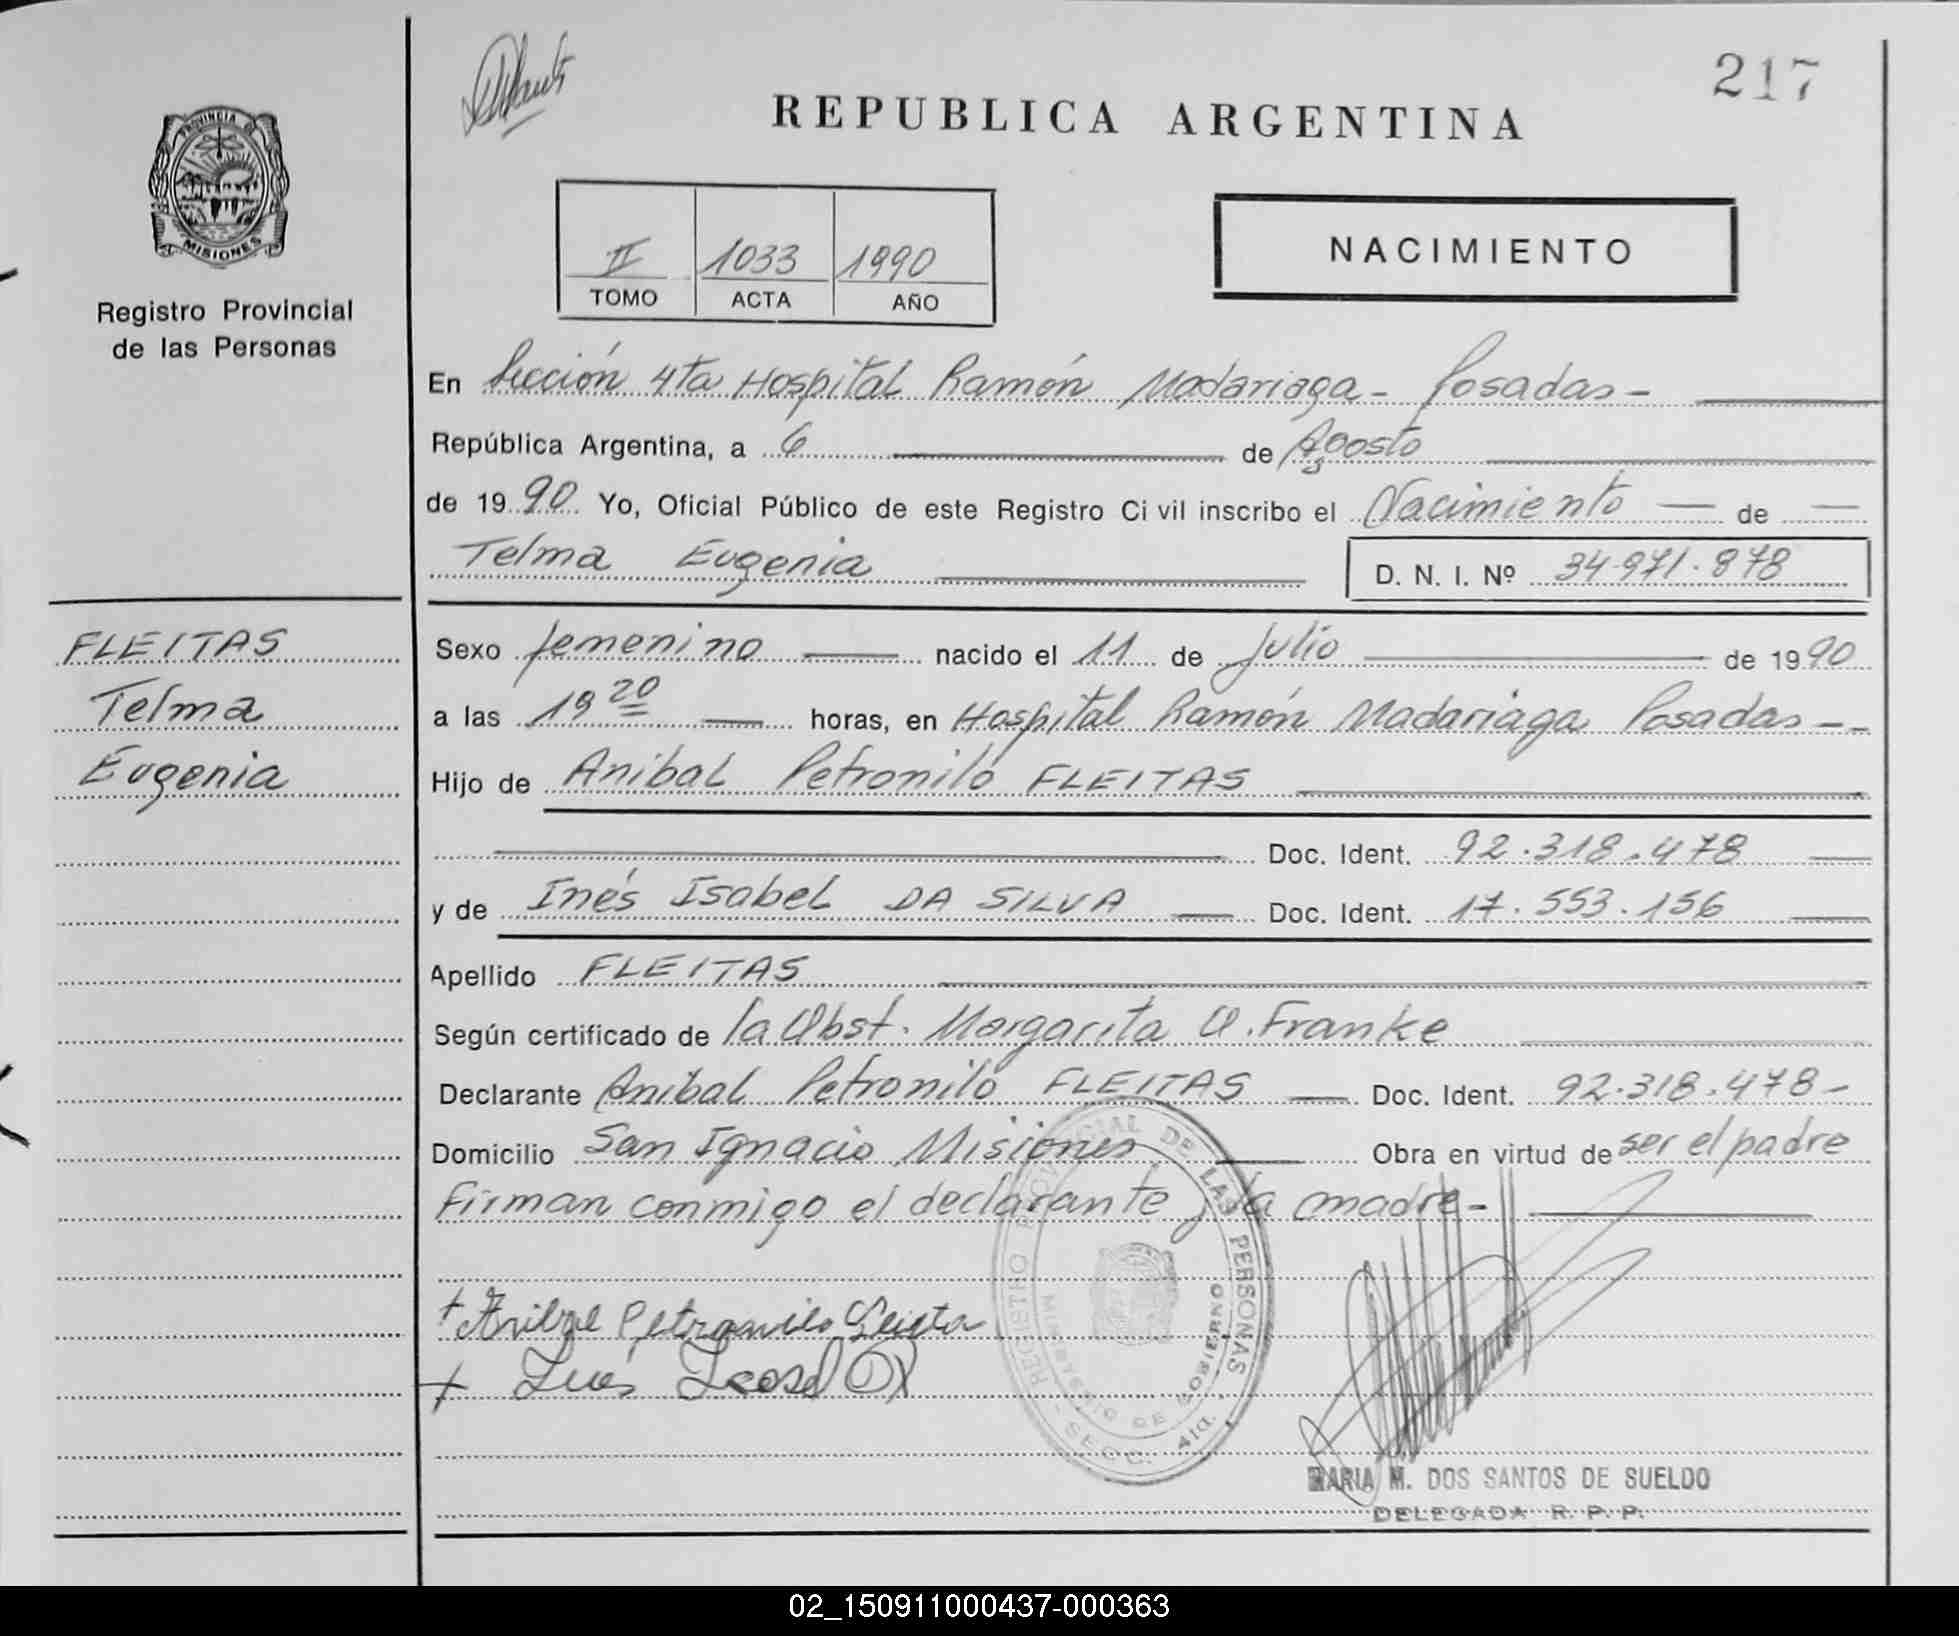 217
REPUBLICA ARGENTINA
PROVINCIA DE
MISIONES
Registro Provincial
de las Personas
II 1033 1990
TOMO ACTA AÑO
NACIMIENTO
En Sección 4ta Hospital Ramón Madariaga - Posadas -
República Argentina, a 6 de Agosto
de 1990 Yo, Oficial Público de este Registro Civil inscribo el Nacimiento — de —
Telma Eugenia D. N. I. Nº 34.971.878
FLEITAS
Telma
Eugenia
Sexo femenino nacido el 11 de Julio de 1990
a las 19 20 horas, en Hospital Ramón Madariaga Posadas - -
Hijo de Anibal Petronilo FLEITAS
Doc. Ident. 92.318.478
y de Inés Isabel DA SILVA Doc. Ident. 17.553.156
Apellido FLEITAS
Según certificado de la Obst. Margarita O. Franke
Declarante Anibal Petronilo FLEITAS Doc. Ident. 92.318.478-
Domicilio San Ignacio Misiones Obra en virtud de ser el padre
Firman conmigo el declarante y la madre-
REGISTRO PROVINCIAL DE LAS PERSONAS
MINISTERIO DE GOBIERNO
- SECC. 4ta.
+ Petronilo
+ Inés
MARIA M. DOS SANTOS DE SUELDO
DELEGADA R. P. P.
02_150911000437-000363